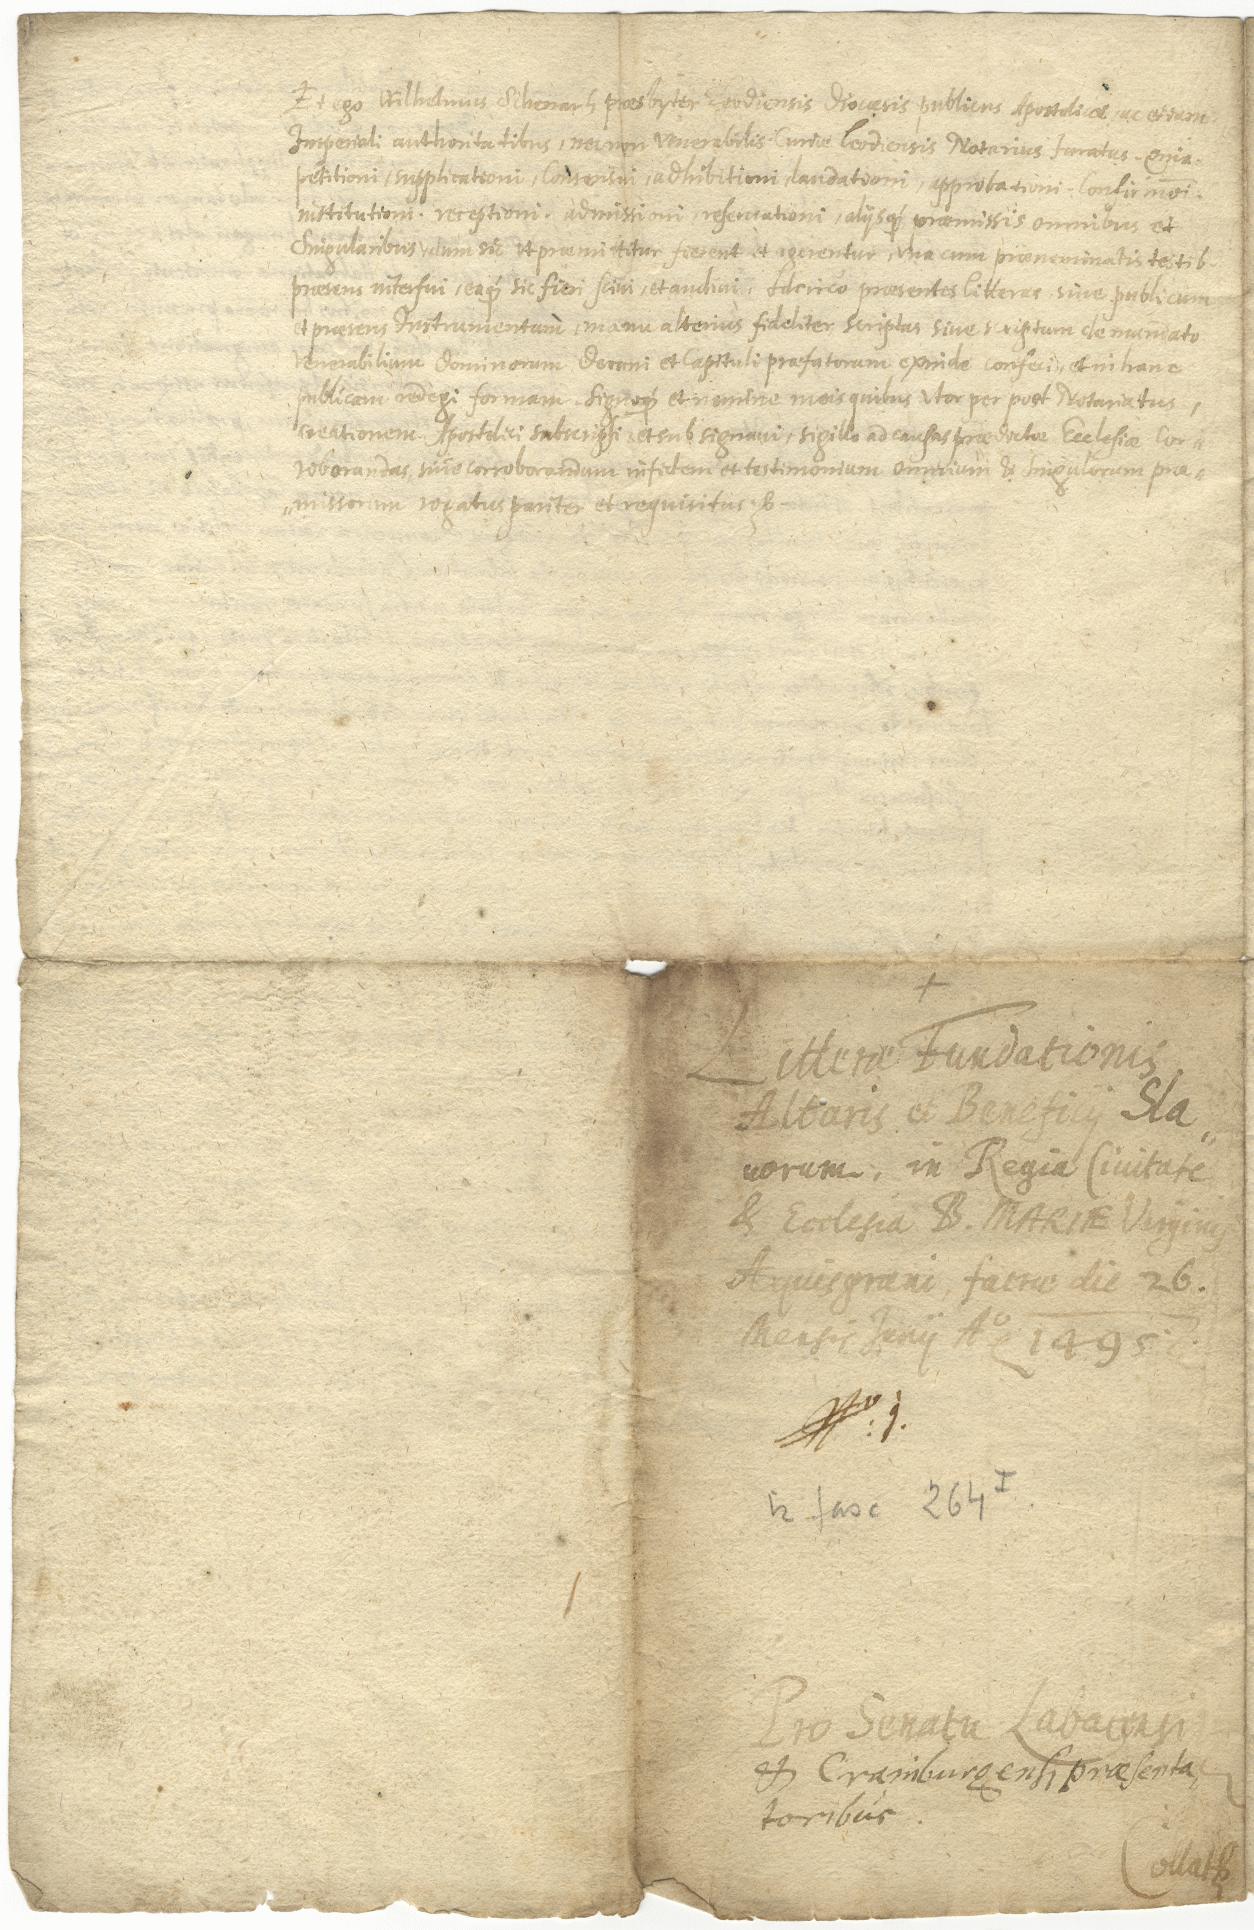 Et ego Wilhelmus præsbyter Leodiensis Diocæsis publicus Apostolicæ, ac etiam
Imperiali authoritatibus, necnon Venerabilis Curiæ Leodiensis Notarius Juratus
petitioni, supplicationi, Consensui, adhibitioni, laudationi, approbationi.
institutioni. receptioni. admissioni, reservationi, alijsq́ præmissis omnibus et
singularibus, dum sic ut præmittitur fierent et agerentur, una cum prænominatis testib.
præsens interfui, eaq́ sic fieri scivi, et audivi. Idcirco præsentes litteras, sive publicum
et præsens Instrumentum, manu alterius fideliter scriptas sive scriptum de mandato
venerabilium Dominorum Decani et Capituli præfatorum exinde confeci, et in hanc
publicam redegi formam. Signoq́ et nomine meis quibus utor per post Notariatus,
creationem Apostolici subscripsi et sub signavi, sigillo ad causas prædictæ Ecclesiæ Cor„
roborandas, sive corroborandum in fidem et testimonium omnium & singulorum præ„
„missorum rogatus pariter et requisitus
+
Litteræ Fundationis
Altaris et Beneficij Sla„
vorum, in Regia Civitate
& Ecclesia B. MARIÆ Virginis
Aquisgrani, factæ die 26.
Mensis Junij Aº 1495.
Nº: 1.
iz fasc 264 I.
Pro Senatu Labacensi
& Crainburgensi præsenta„
toribus.